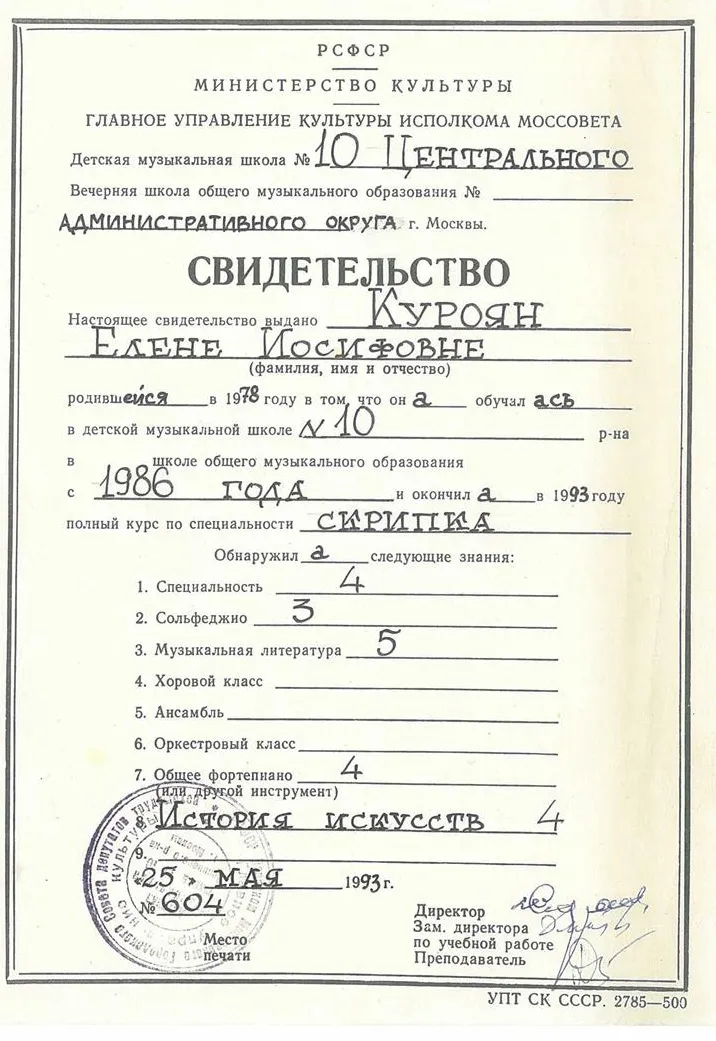 РСФСР
МИНИСТЕРСТВО КУЛЬТУРЫ
ГЛАВНОЕ УПРАВЛЕНИЕ КУЛЬТУРЫ ИСПОЛКОМА МОССОВЕТА
Детская музыкальная школа № 10 ЦЕНТРАЛЬНОГО
Вечерняя школа общего музыкального образования №
АДМИНИСТРАТИВНОГО ОКРУГА г. Москвы.
СВИДЕТЕЛЬСТВО
Настоящее свидетельство выдано КУРОЯН
ЕЛЕНЕ ИОСИФОВНЕ
(фамилия, имя и отчество)
родившейся в 1978 году в том, что он а обучал ась
в детской музыкальной школе N 10 р-на
в школе общего музыкального образования
с 1986 ГОДА и окончил а в 1993 году
полный курс по специальности СКРИПКА
Обнаружил а следующие знания:
1. Специальность 4
2. Сольфеджио 3
3. Музыкальная литература 5
4. Хоровой класс
5. Ансамбль
6. Оркестровый класс
7. Общее фортепиано 4
(или другой инструмент)
8. ИСТОРИЯ ИСКУССТВ 4
9.
«25» МАЯ 1993 г.
№ 604
Место
печати
Директор
Зам. директора
по учебной работе
Преподаватель
УПТ СК СССР. 2785—500